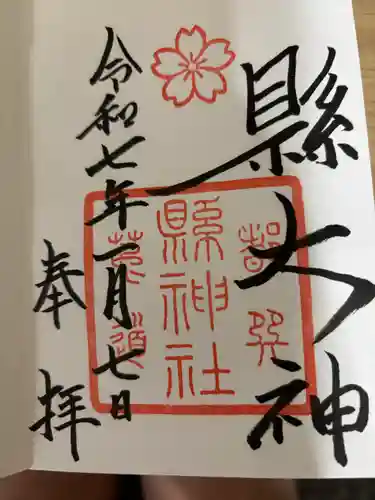 縣大神
都巽
縣神社
菟道
令和七年一月七日
奉拝